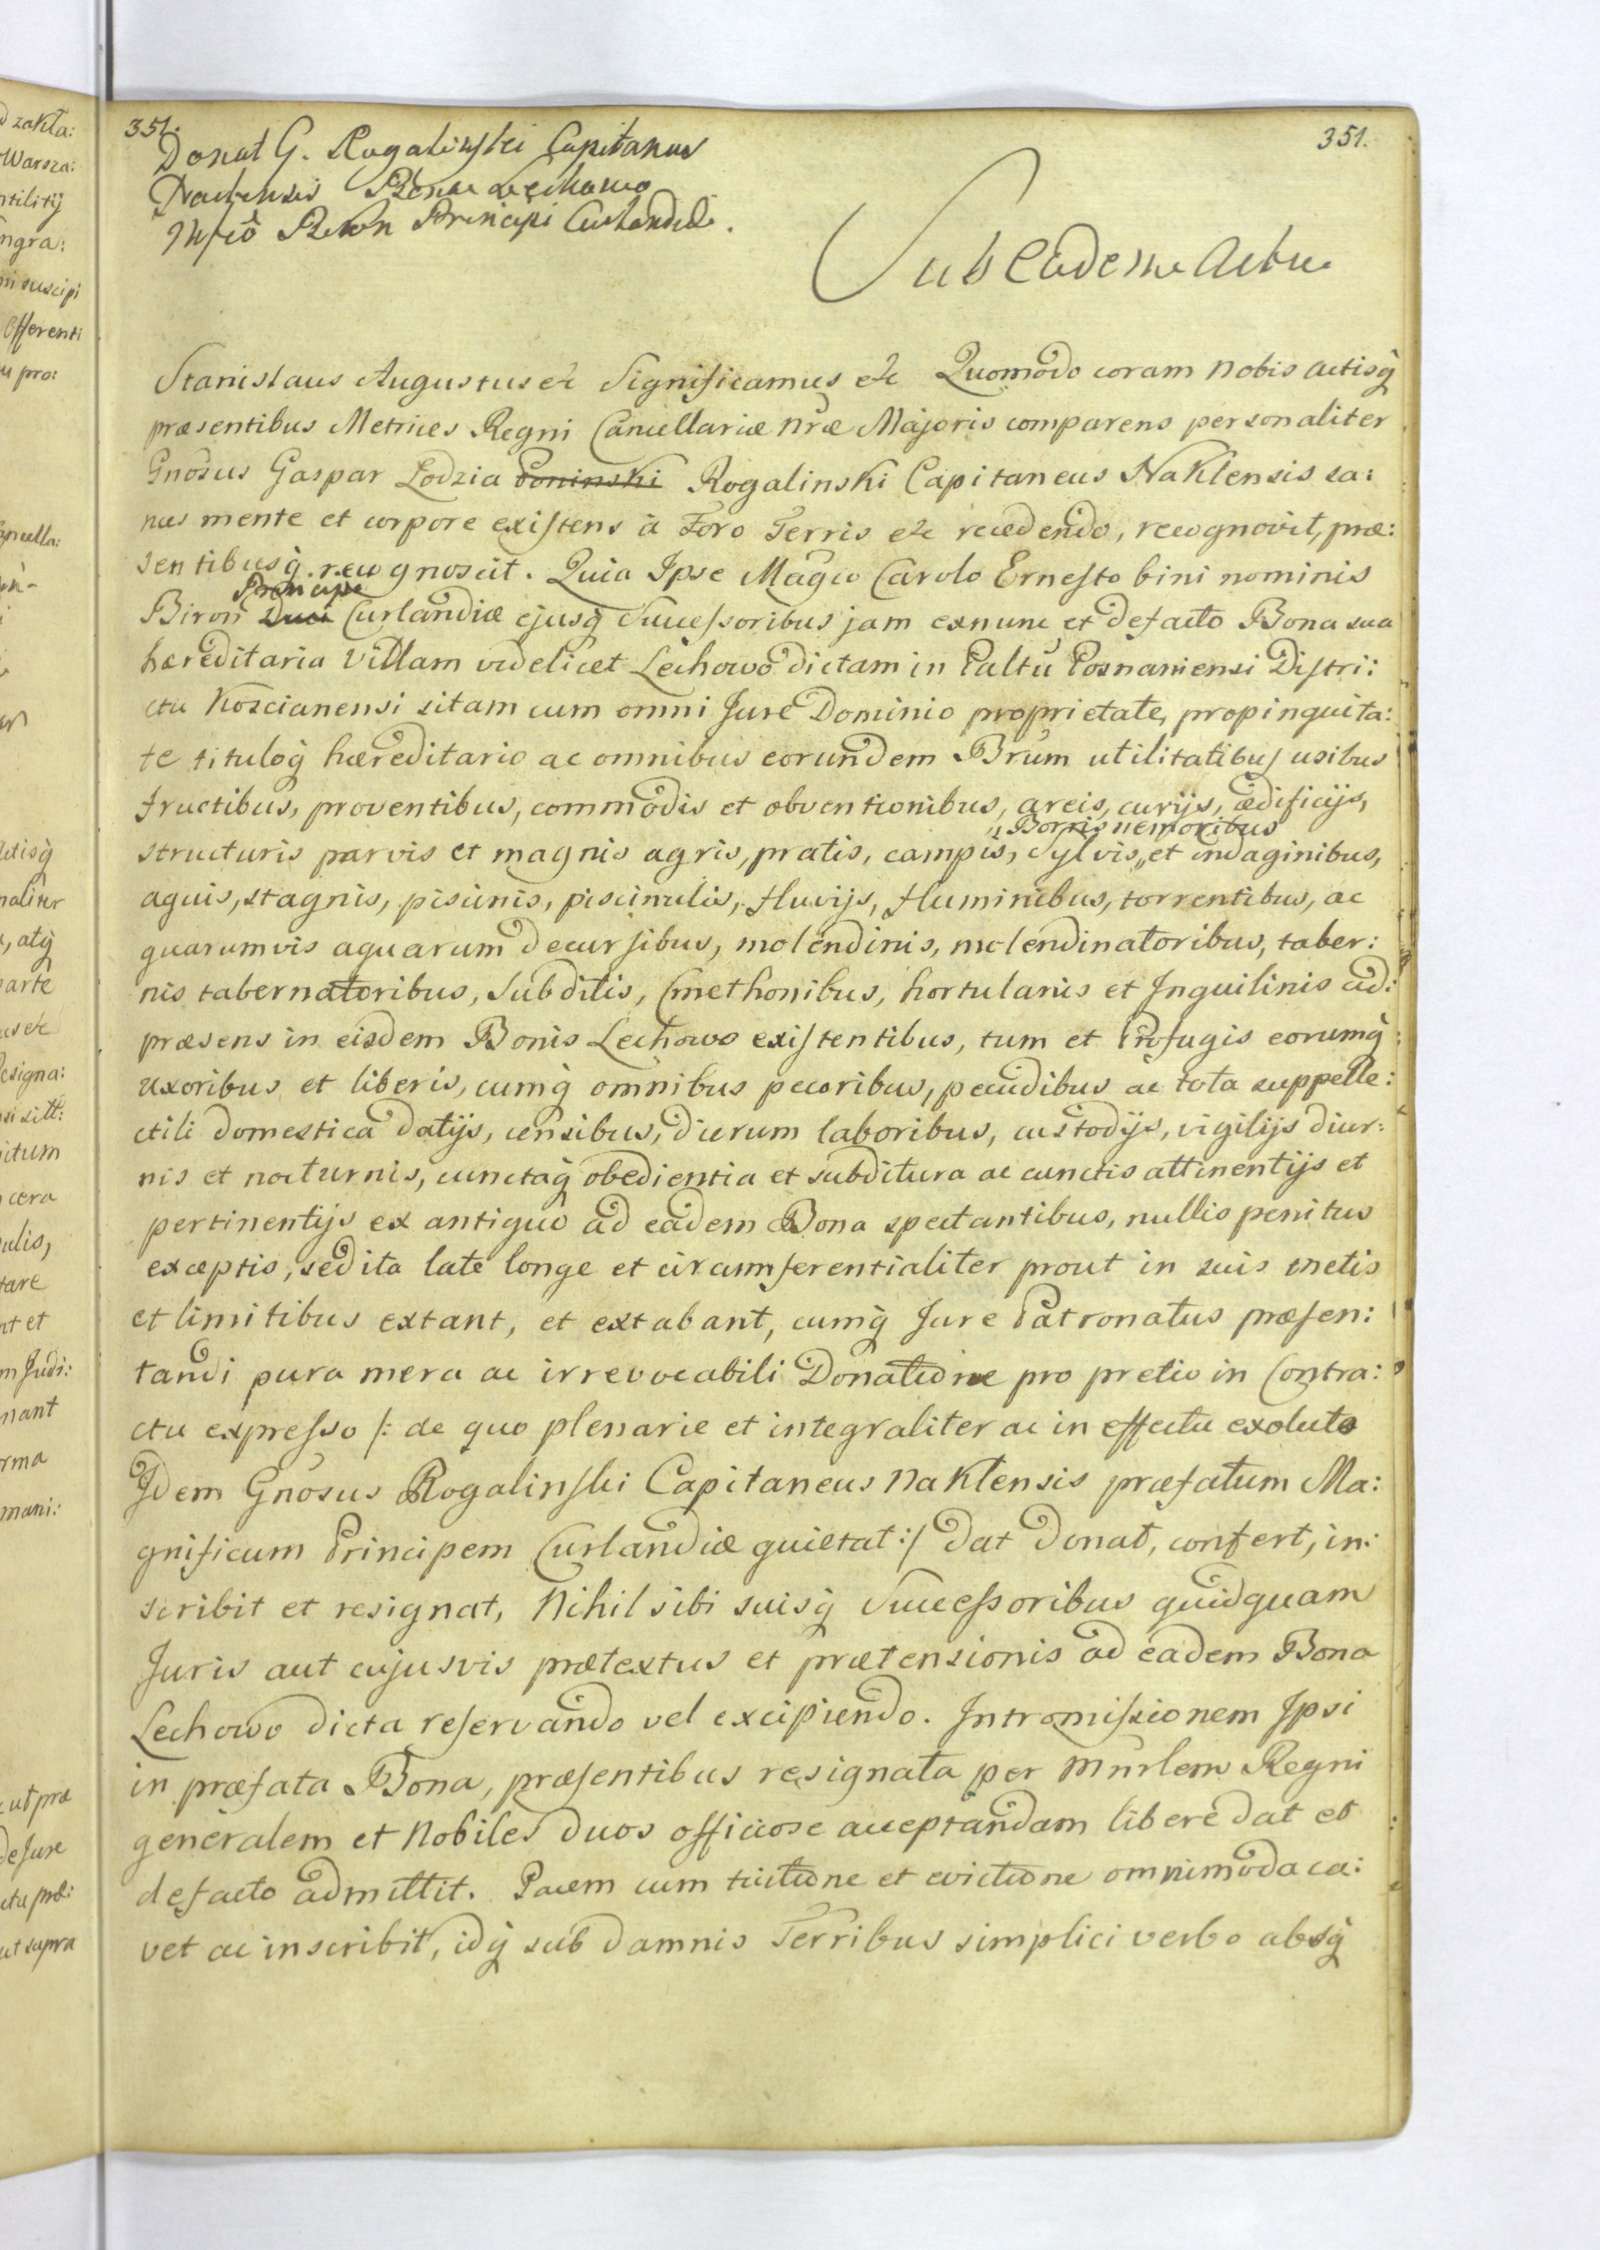 351.
351.
Donat G. Rogalinski Capitaneus
Naclensis Bona Lechowo
Mfco Biron Principi Curlandiæ.
Sub Eadem Actu
Stanislaus Augustus etc Significamus etc Quomodo coram Nobis Actisq́
præsentibus Metrices Regni Cancellariæ Nræ Majoris comparens personaliter
Gnosus Gaspar Lodzia Poninski Rogalinski Capitaneus Naklensis sa:
nus mente et corpore existens à Foro Terris etc recedendo, recognovit, præ:
sentibusq́. recognoscit. Quia Ipse Magco Carolo Ernesto bini nominis
Principi
Biron Duci Curlandiæ ejusq́ Successoribus jam exnunc et defacto Bona sua
hæreditaria Villam videlicet Lechowo dictam in Paltu Posnaniensi Distri:
ctu Koscianensi sitam cum omni Jure Dominio proprietate, propinquita:
te tituloq́ hæreditario ac omnibus eorundem Brum utilitatibus usibus
fructibus, proventibus, commodis et obventionibus, areis, curijs, ædificijs,
Borris nemoribus
structuris parvis et magnis agris, pratis, campis, Sylvis, et indaginibus,
aquis, stagnis, piscinis, piscinulis, fluvijs, fluminibus, torrentibus, ac
quarumvis aquarum decursibus, molendinis, molendinatoribus, taber:
nis tabernatoribus, Subditis, Cmethonibus, hortulanis et Inquilinis ad:
præsens in eisdem Bonis Lechowo existentibus, tum et Profugis eorumq́
uxoribus et liberis, cumq́ omnibus pecoribus, pecudibus ac tota suppelle:
ctili domestica datijs, censibus, dierum laboribus, custodijs, vigilijs diur:
nis et nocturnis, cunctaq́ obedientia et subditura ac cunctis attinentijs et
pertinentijs ex antiquo ad eadem Bona spectantibus, nullis penitus
exceptis, sed ita late longe et circumferentialiter prout in suis metis
et limitibus extant, et extabant, cumq́ Jure Patronatus præsen:
tandi pura mera ac irrevocabili Donatione pro pretio in Contra:
ctu expresso /: de quo plenarie et integraliter ac in effectu exoluto
Idem Gnosus Rogalinski Capitaneus Naklensis præfatum Ma:
gnificum Principem Curlandiæ quietat :/ dat donat, confert, in:
scribit et resignat, Nihil sibi suisq́ Successoribus quidquam
Juris aut cujusvis prætextus et prætensionis ad eadem Bona
Lechowo dicta reservando vel excipiendo. Intromissionem Ipsi
in præfata Bona, præsentibus resignata per Mnrlem Regni
generalem et Nobiles duos officiose acceptandam libere dat et
defacto admittit. Pacem cum tuitione et evictione omnimoda ca:
vet ac inscribit, idq́ sub damnis Terribus simplici verbo absq́